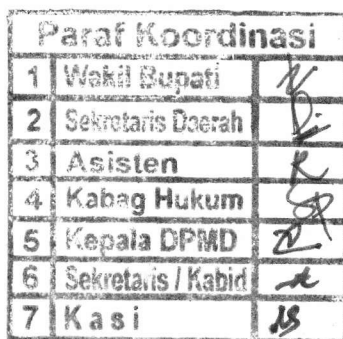 Paraf Koordinasi
1 Wakil Bupati
2 Sekretaris Daerah
3 Asisten
4 Kabag Hukum
5 Kepala DPMD
6 Sekretaris / Kabid
7 Kasi